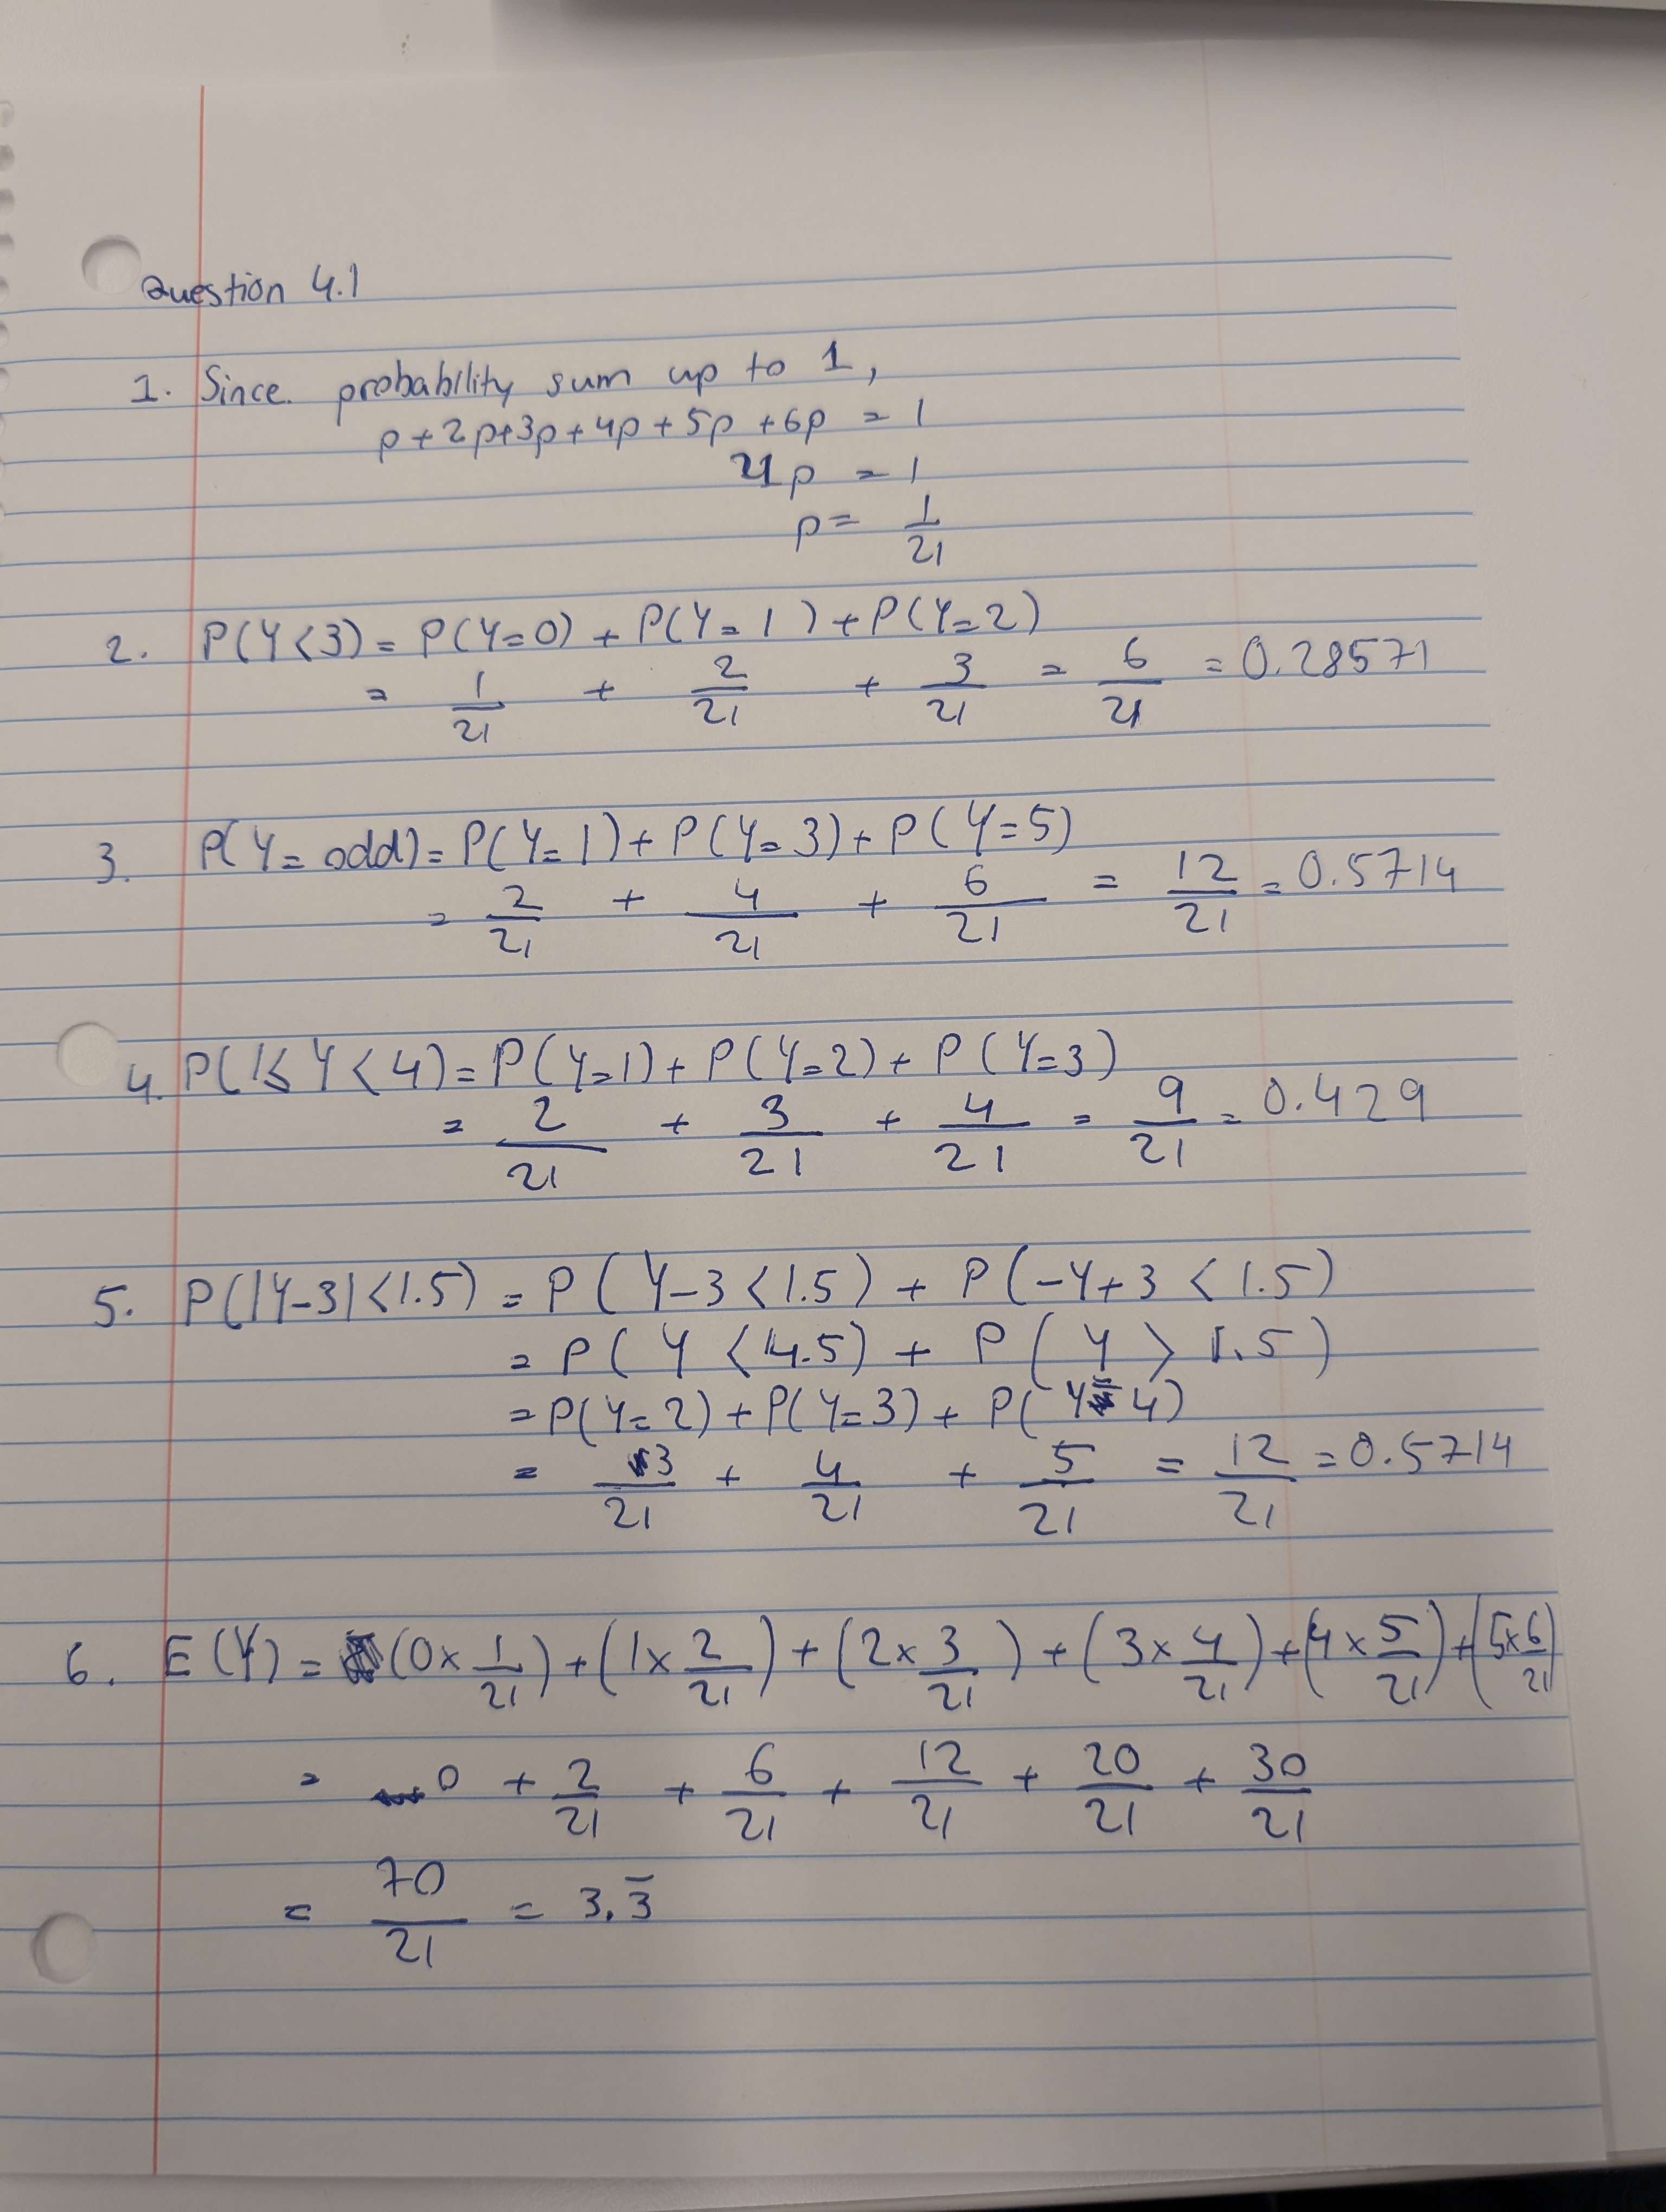 Question 4.1
1. Since. probability sum up to 1,
p+2p+3p+4p+5p+6p = 1
21p = 1
p = 1/21
2. P(Y<3) = P(Y=0) + P(Y=1) + P(Y=2)
= 1/21 + 2/21 + 3/21 = 6/21 = 0.28571
3. P(Y= odd) = P(Y=1) + P(Y=3) + P(Y=5)
= 2/21 + 4/21 + 6/21 = 12/21 = 0.5714
4. P(1≤Y<4) = P(Y=1) + P(Y=2) + P(Y=3)
= 2/21 + 3/21 + 4/21 = 9/21 = 0.429
5. P(|Y-3|<1.5) = P(Y-3<1.5) + P(-Y+3<1.5)
= P(Y<4.5) + P(Y>1.5)
= P(Y=2) + P(Y=3) + P(Y=4)
= 3/21 + 4/21 + 5/21 = 12/21 = 0.5714
6. E(Y) = (0×1/21) + (1×2/21) + (2×3/21) + (3×4/21) + (4×5/21) + (5×6/21)
= 0 + 2/21 + 6/21 + 12/21 + 20/21 + 30/21
= 70/21 = 3.3̅